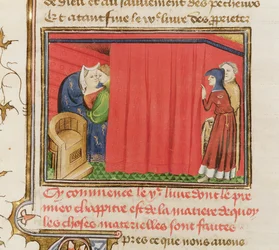 de dieu et au sauuement des pecheurs
Et atant fine le .vᵉ. liure des prietez
Cy commence le .vjᵉ. liure dont le pre
mier chappitre est de la matiere de quoy
les choses materielles sont faictes
pres ce que nous auons